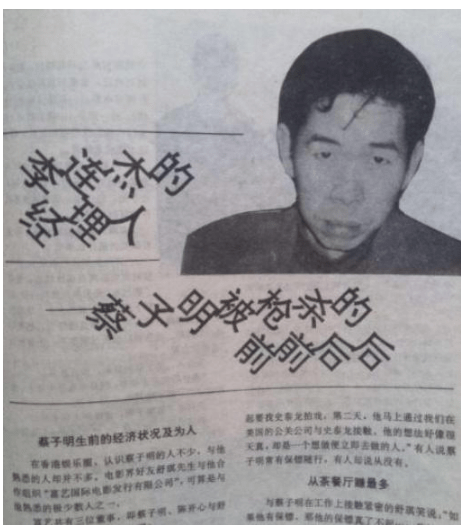 李连杰的
经理人
——蔡子明被枪杀的
前前后后
蔡子明生前的经济状况及为人
在香港娱乐圈，认识蔡子明的人不少，与他
熟悉的人却并不多。电影界好友舒琪先生与他合
作组织“富艺国际电影发行有限公司”，可算是与
他熟悉的极少数人之一。
富艺共有三位董事，即蔡子明、陈开心与舒
起要找史泰龙拍戏，第二天，他马上通过我们在
美国的公关公司与史泰龙接触。他的想法好像很
天真，却是一个想做便立即去做的人。”有人说蔡
子明常有保镖随行，有人却说从没有。
从茶餐厅赚最多
与蔡子明在工作上接触紧密的舒琪笑说：“如
果他有保镖，那他的保镖真了不起